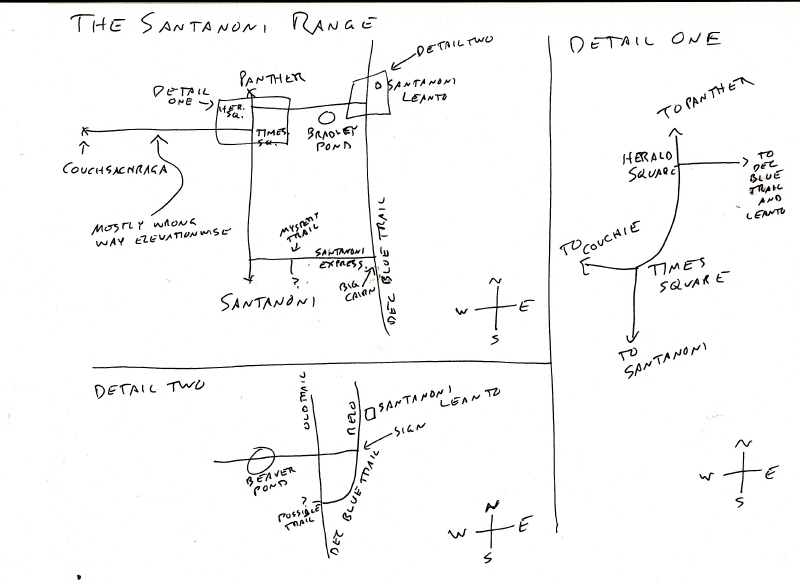 THE SANTANONI RANGE
DETAIL TWO
PANTHER
DETAIL
ONE
HER.
SQ.
SANTANONI
LEANTO
TIMES
SQ.
BRADLEY
POND
COUCHSACHRAGA
MOSTLY WRONG
WAY ELEVATIONWISE
MYSTERY
TRAIL
?
SANTANONI
EXPRESS
BIG
CAIRN
DEC BLUE TRAIL
SANTANONI
N
W E
S
DETAIL ONE
TO PANTHER
HERALD
SQUARE
TO
DEC
BLUE
TRAIL
AND
LEANTO
TO COUCHIE
TIMES
SQUARE
TO
SANTANONI
N
W E
S
DETAIL TWO
OLD TRAIL
RELO
SANTANONI
LEANTO
SIGN
BEAVER
POND
?
POSSIBLE
TRAIL
DEC BLUE TRAIL
N
W E
S